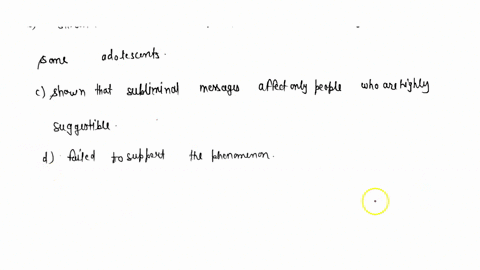 some adolescents.
c) shown that subliminal messages affect only people who are highly
suggestible.
d) failed to support the phenomenon.